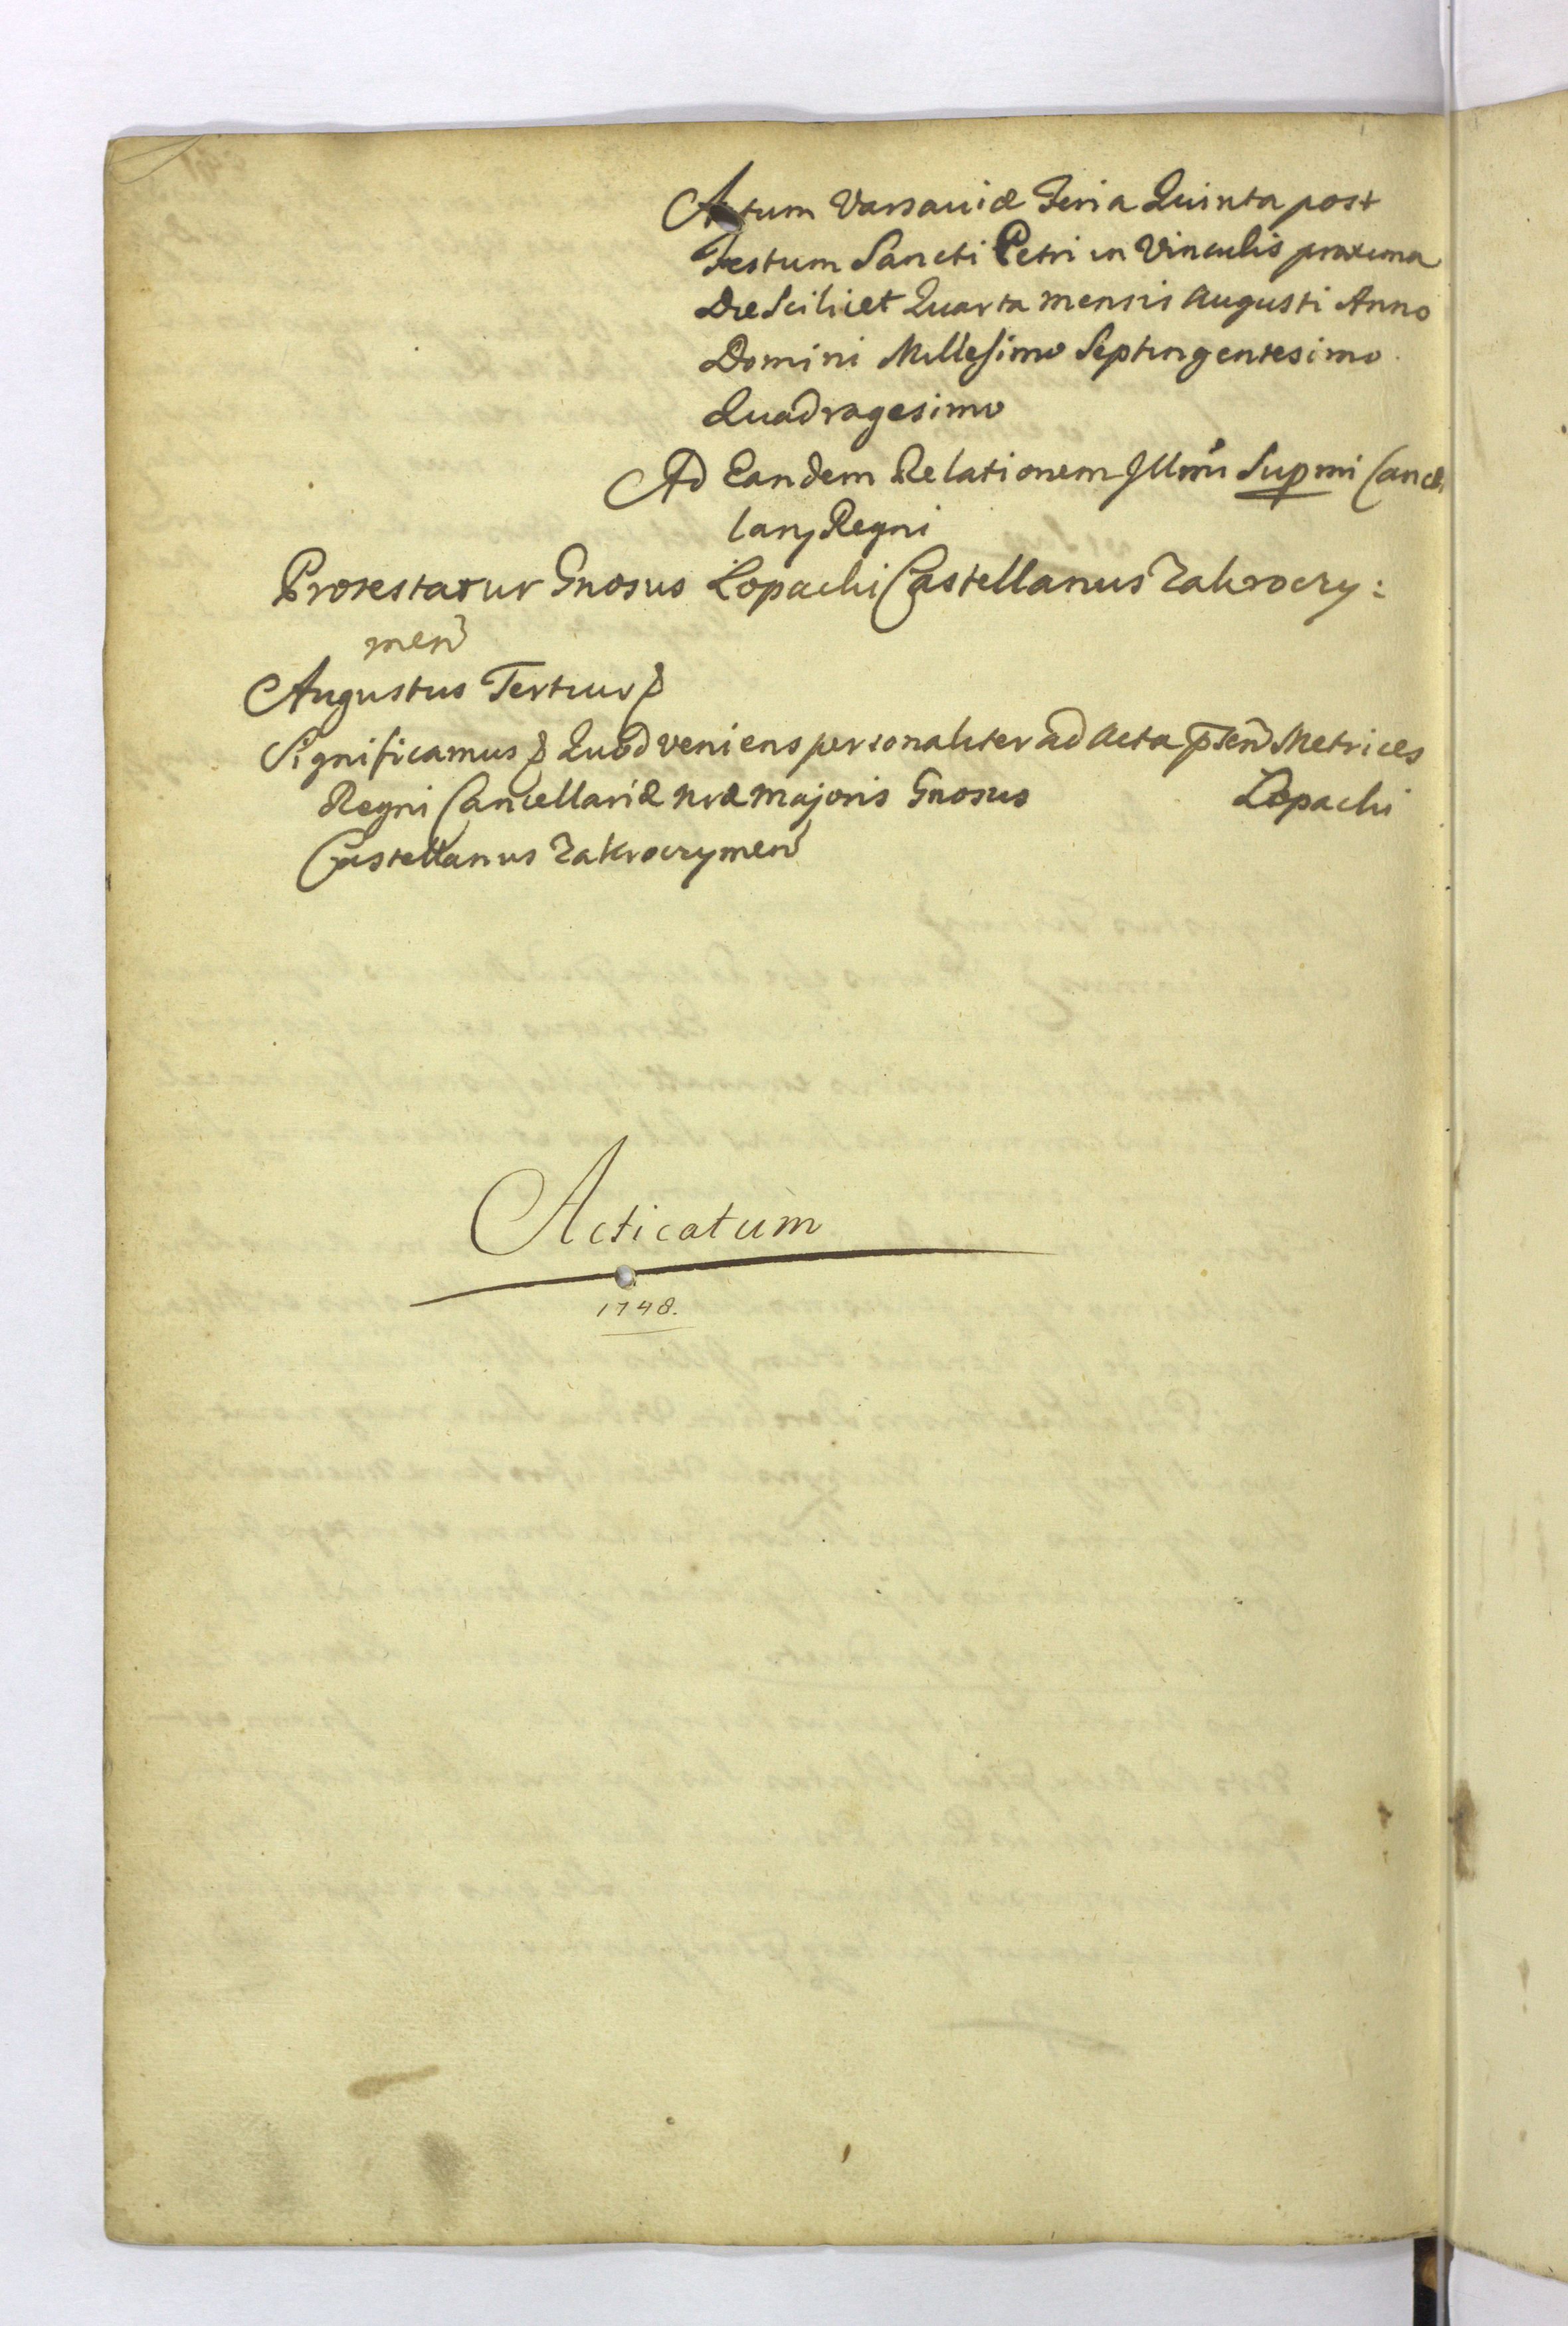 Actum Varsaviæ Feria Quinta post
Festum Sancti Petri in Vinculis proxima
Die Scilicet Quarta mensis Augusti Anno
Domini Millesimo Septingentesimo
Quadragesimo
Ad Eandem Relationem Illmi Supmi Cancel
larij Regni
Protestatur Gnosus Lopachi Castellanus Zakroczy:
men
Augustus Tertius &
Significamus & Quod veniens personaliter ad Acta pñten Metrices
Regni Cancellariæ nræ majoris Gnosus Lopachi
Castellanus Zakroczymen
Acticatum
1748.